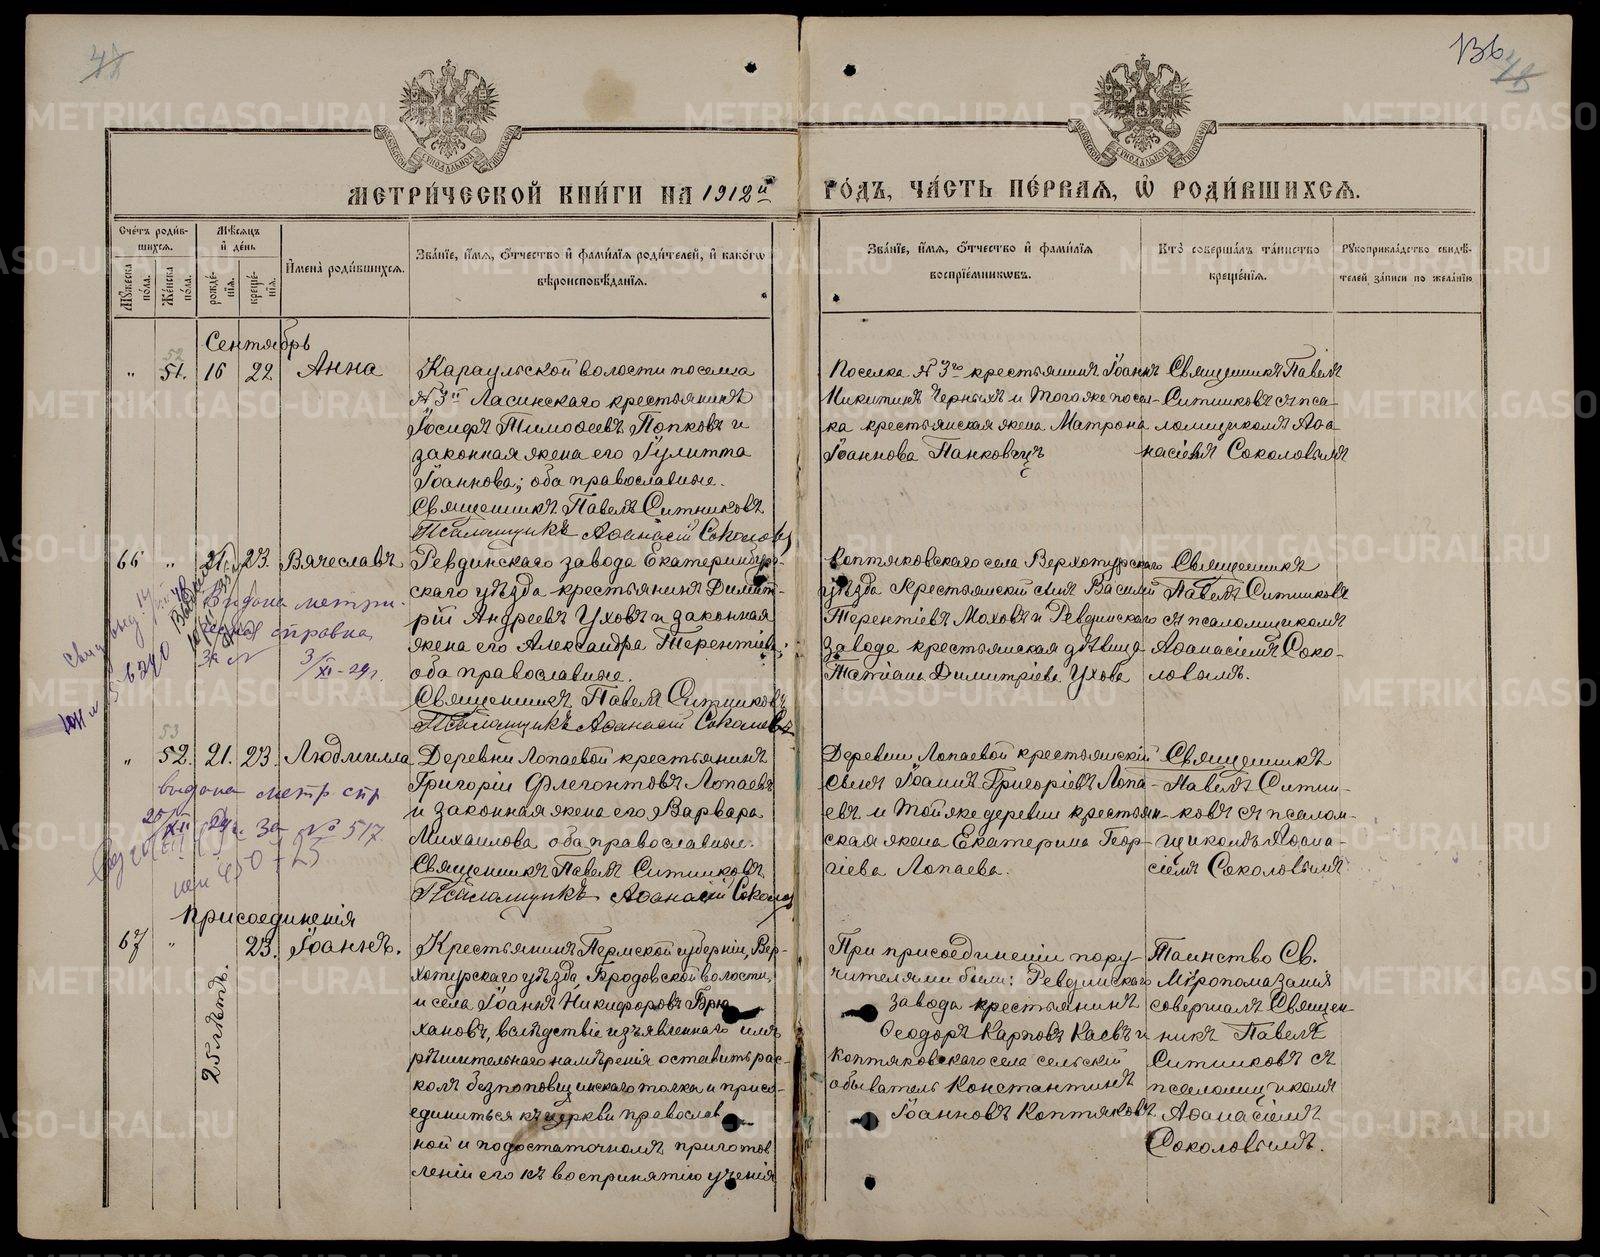 136
МЕТРИ́ЧЕСКОЙ КНИ́ГИ НА 1912й
ГО́ДЪ, ЧА́СТЬ ПЕ́РВАЯ, Ѡ҆ РОДИ́ВШИХСЯ.
Сче́тъ роди́вшихся.
Мѣ́сяцъ и҆ де́нь
Мꙋ́жеска по́ла.
Же́нска по́ла.
рожде́нїя.
креще́нїя.
И҆мена̀ роди́вшихся.
Зва́нїе, и҆́мя, ѻ҆́тчество и҆ фами́лїя роди́телей, и҆ како́гѡ
вѣроисповѣ́данїя.
Зва́нїе, и҆́мя, ѻ҆́тчество и҆ фами́лїя
воспрїе́мникѡвъ.
Кто̀ соверша́лъ та́инство
креще́нїя.
Рꙋкоприкла́дство свидѣ́-
телей за́писи по жела́нїю
Сентябрь
" 51. 16 22 Анна
Караульской волости поселка
N 3й Ласинскаго крестьянинъ
Іосифъ Тимоѳеевъ Попковъ и
законная жена его Іулитта
Іоаннова; оба православные.
Священникъ Павелъ Ситниковъ
Псаломщикъ Аѳанасій Соколовъ
Поселка N 3го крестьянинъ Іоаннъ
Никитинъ Черныхъ и того же посел-
ка крестьянская жена Матрона
Іоаннова
Священникъ Павелъ
Ситниковъ съ пса-
ломщикомъ Аѳа-
насіемъ Соколовымъ
66 " 21. 23. Вячеславъ
Ревдинскаго завода Екатеринбург-
скаго уѣзда крестьянинъ Димит-
рій Андреевъ Уховъ и законная
жена его Александра Терентіева;
оба православные.
Священникъ Павелъ Ситниковъ
Псаломщикъ Аѳанасій Соколовъ
Коптяковскаго села Верхотурскаго
уѣзда крестьянскій сынъ Василій
Терентіевъ Моховъ и Ревдинскаго
завода крестьянская дѣвица
Татіана Димитріева Ухова
Священникъ
Павелъ Ситниковъ
съ псаломщикомъ
Аѳанасіемъ Соко-
ловымъ.
Выдана метри-
ческая справка
3/XI-29г.
53
" 52. 21. 23. Людмилла
Деревни Лопаевой крестьянинъ
Григорій Флегонтовъ Лопаевъ
и законная жена его Варвара
Михаилова оба православные.
Священникъ Павелъ Ситниковъ
Псаломщикъ Аѳанасій Соколовъ
Деревни Лопаевой крестьянскій
сынъ Іоаннъ Григоріевъ Лопа-
евъ и той же деревни крестьян-
ская жена Екатерина Геор-
гіева Лопаева.
Священникъ
Павелъ Ситни-
ковъ съ псалом-
щикомъ Аѳана-
сіемъ Соколовымъ
выдана метр. спр
за № 517
Присоединенія
67 " 23. Іоаннъ.
25 лѣтъ.
Крестьянинъ Пермской губерніи, Вер-
хотурскаго уѣзда, Бродовской волости,
и села Іоаннъ Никифоровъ Брю
хановъ, вслѣдствіе изъявленнаго имъ
рѣшительнаго намѣренія оставить рас-
колъ безпоповщинскаго толка и присо-
единиться къ церкви православ
ной и по достаточномъ приготов
леніи его къ воспринятію ученія
При присоединеніи пору-
чителями были: Ревдинскаго
завода крестьянинъ
Ѳеодоръ Карповъ Каевъ и
Коптяковскаго села сельскій
обыватель Константинъ
Іоанновъ Коптяковъ
Таинство Св.
Мѵропомазанія
совершалъ Священ-
никъ Павелъ
Ситниковъ съ
псаломщикомъ
Аѳанасіемъ
Соколовымъ.
METRIKI.GASO-URAL.RU